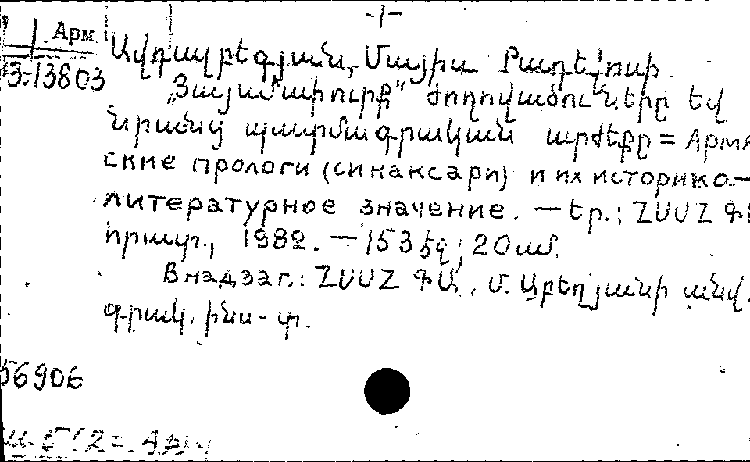 -1-
Арм.
13813803 Ավդալբեգյան, Մայիս Թադևոսի
„Յայսմաւուրք“ ժողովածուները եվ
նրանց պատմագրական արժեքը = Армян
ские прологи (синаксари) и их историко-
литературное значение. — Եր.: ՀՍՍՀ ԳԱ
հրատ., 1982. — 153 էջ; 20 սմ.
В надзаг.: ՀՍՍՀ ԳԱ, Մ. Աբեղյանի անվ.
գրակ. ինս-տ.
56906